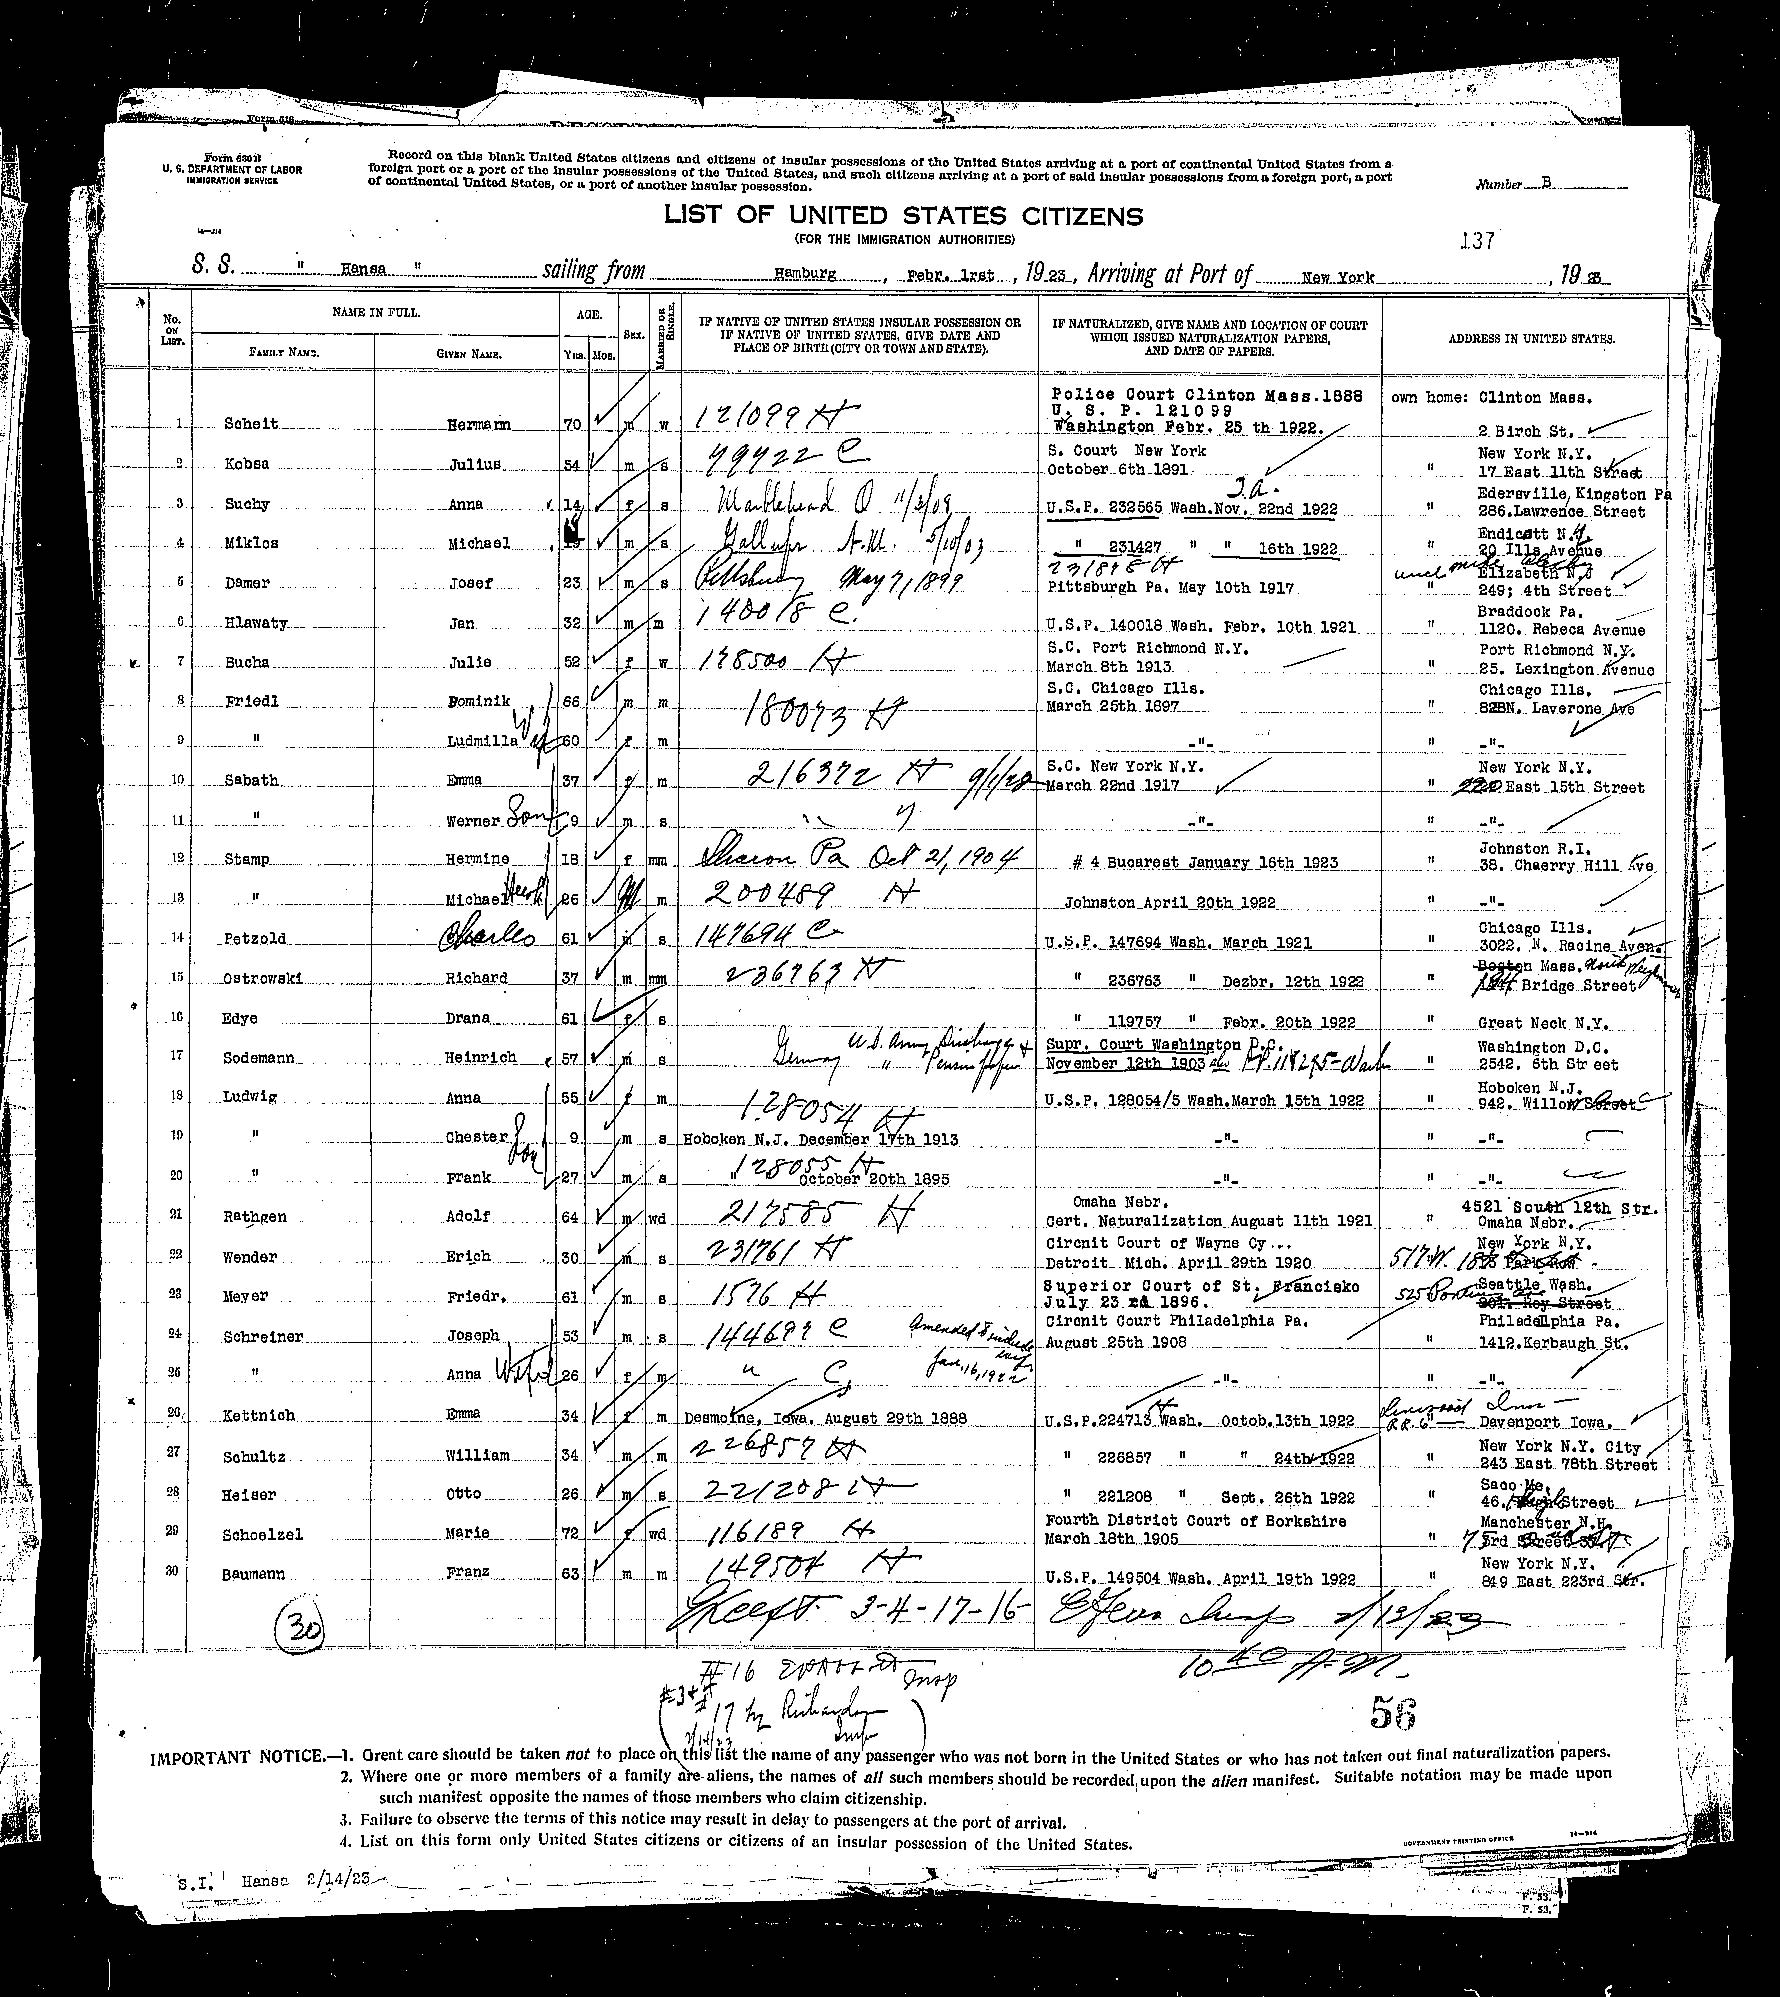 Form 630 B
U. S. DEPARTMENT OF LABOR
IMMIGRATION SERVICE
Record on this blank United States citizens and citizens of insular possessions of the United States arriving at a port of continental United States from a
foreign port or a port of the insular possessions of the United States, and such citizens arriving at a port of said insular possessions from a foreign port, a port
of continental United States, or a port of another insular possession.
Number B
LIST OF UNITED STATES CITIZENS
(FOR THE IMMIGRATION AUTHORITIES)
137
S. S. " Hansa " sailing from Hamburg, Febr. 1rst, 1923, Arriving at Port of New York, 1923
No. ON LIST. NAME IN FULL. AGE. SEX. MARRIED OR SINGLE. IF NATIVE OF UNITED STATES INSULAR POSSESSION OR IF NATIVE OF UNITED STATES, GIVE DATE AND PLACE OF BIRTH (CITY OR TOWN AND STATE). IF NATURALIZED, GIVE NAME AND LOCATION OF COURT WHICH ISSUED NATURALIZATION PAPERS, AND DATE OF PAPERS. ADDRESS IN UNITED STATES.
FAMILY NAME. GIVEN NAME. YRS. MOS.
Police Court Clinton Mass. 1888 own home: Clinton Mass.
U. S. P. 121099
1 Scheit Hermann 70 m w 121099 H Washington Febr. 25 th 1922. 2 Birch St.
S. Court New York New York N.Y.
2 Kobsa Julius 54 m s 79722 C October 6th 1891. " 17 East 11th Street
Edersville, Kingston Pa
3 Suchy Anna 14 f s Marblehead O 11/2/08 U.S.P. 232565 Wash.Nov. 22nd 1922 " 286.Lawrence Street
Endicott N.Y
4 Miklos Michael m s 5/10/03 " 231427 " " 16th 1922 " 20 Ills Avenue
Elizabeth N.J
5 Damer Josef 23 m s Pittsburg May 7, 1899 Pittsburgh Pa. May 10th 1917 " 249; 4th Street
Braddock Pa.
6 Hlawaty Jan 32 m m 140018 C. U.S.P. 140018 Wash. Febr. 10th 1921 " 1120. Rebeca Avenue
S.C. Port Richmond N.Y. Port Richmond N.Y.
7 Bucha Julie 52 f w 178500 H March 8th 1913 " 25. Lexington Avenue
S.C. Chicago Ills. Chicago Ills.
8 Friedl Dominik 66 m m 180073 H March 25th 1897 " 828N. Laverone Ave
9 " Ludmilla wf 60 f m -"- " -"-
S.C. New York N.Y. New York N.Y.
10 Sabath Emma 37 f m 216372 H March 22nd 1917 " 220 East 15th Street
11 " Werner Son 9 m s -"- " -"-
Johnston R.I.
12 Stamp Hermine 18 f mm Sharon Pa Oct 21, 1904 # 4 Bucarest January 16th 1923 " 38. Chaerry Hill Ave
13 " Michael 26 M m 200489 H Johnston April 20th 1922 " -"-
Chicago Ills.
14 Petzold Charles 61 m s 147694 C U.S.P. 147694 Wash. March 1921 " 3022. N. Racine Aven.
Boston Mass.
15 Ostrowski Richard 37 m mm 236763 H " 236763 " Dezbr. 12th 1922 " Bridge Street
16 Edye Drana 61 f s " 119757 " Febr. 20th 1922 " Great Neck N.Y.
Supr. Court Washington D.C. Washington D.C.
17 Sodemann Heinrich 57 m s Germany November 12th 1903 " 2542. 5th Street
Hoboken N.J.
18 Ludwig Anna 55 f m 128054 H U.S.P. 128054/5 Wash.March 15th 1922 " 942. Willow Street
19 " Chester Son 9 m s Hoboken N.J. December 17th 1913 -"- " -"-
128055 H
20 " Frank 27 m s " October 20th 1895 -"- " -"-
Omaha Nebr. 4521 South 12th Str.
21 Rathgen Adolf 64 m wd 217585 H Cert. Naturalization August 11th 1921 " Omaha Nebr.
Circnit Court of Wayne Cy... New York N.Y.
22 Wender Erich 30 m s 231761 H Detroit Mich. April 29th 1920 517 W.
Superior Court of St. Francisko Seattle Wash.
23 Meyer Friedr. 61 m s 1576 H July 23 rd 1896. 801. Roy Street
Circnit Court Philadelphia Pa. Philadellphia Pa.
24 Schreiner Joseph 53 m s 144697 C Amended to include wife Jan. 16, 1922 August 25th 1908 " 1412.Kerbaugh St.
25 " Anna Wife 26 f m " C -"- " -"-
26 Kettnich Emma 34 f m Desmoine, Iowa. August 29th 1888 U.S.P.224713 Wash. Octob.13th 1922 R.R. 6 Davenport Iowa.
New York N.Y. City
27 Schultz William 34 m m 226857 H " 226857 " " 24th 1922 " 243 East 78th Street
Saco Me.
28 Heiser Otto 26 m s 221208 H " 221208 " Sept. 26th 1922 " 46. High Street
Fourth District Court of Borkshire Manchester N.H.
29 Schoelzel Marie 72 f wd 116189 H March 18th 1905 "
New York N.Y.
30 Baumann Franz 63 m m 149504 H U.S.P. 149504 Wash. April 19th 1922 " 849 East 223rd Str.
30 3-4-17-16- Insp 2/12/23
10 40 A.M.
#16 Insp
#17 by Richardson Insp
56
IMPORTANT NOTICE.—1. Great care should be taken not to place on this list the name of any passenger who was not born in the United States or who has not taken out final naturalization papers.
2. Where one or more members of a family are aliens, the names of all such members should be recorded upon the alien manifest. Suitable notation may be made upon
such manifest opposite the names of those members who claim citizenship.
3. Failure to observe the terms of this notice may result in delay to passengers at the port of arrival.
4. List on this form only United States citizens or citizens of an insular possession of the United States.
GOVERNMENT PRINTING OFFICE
S.I. Hansa 2/14/23